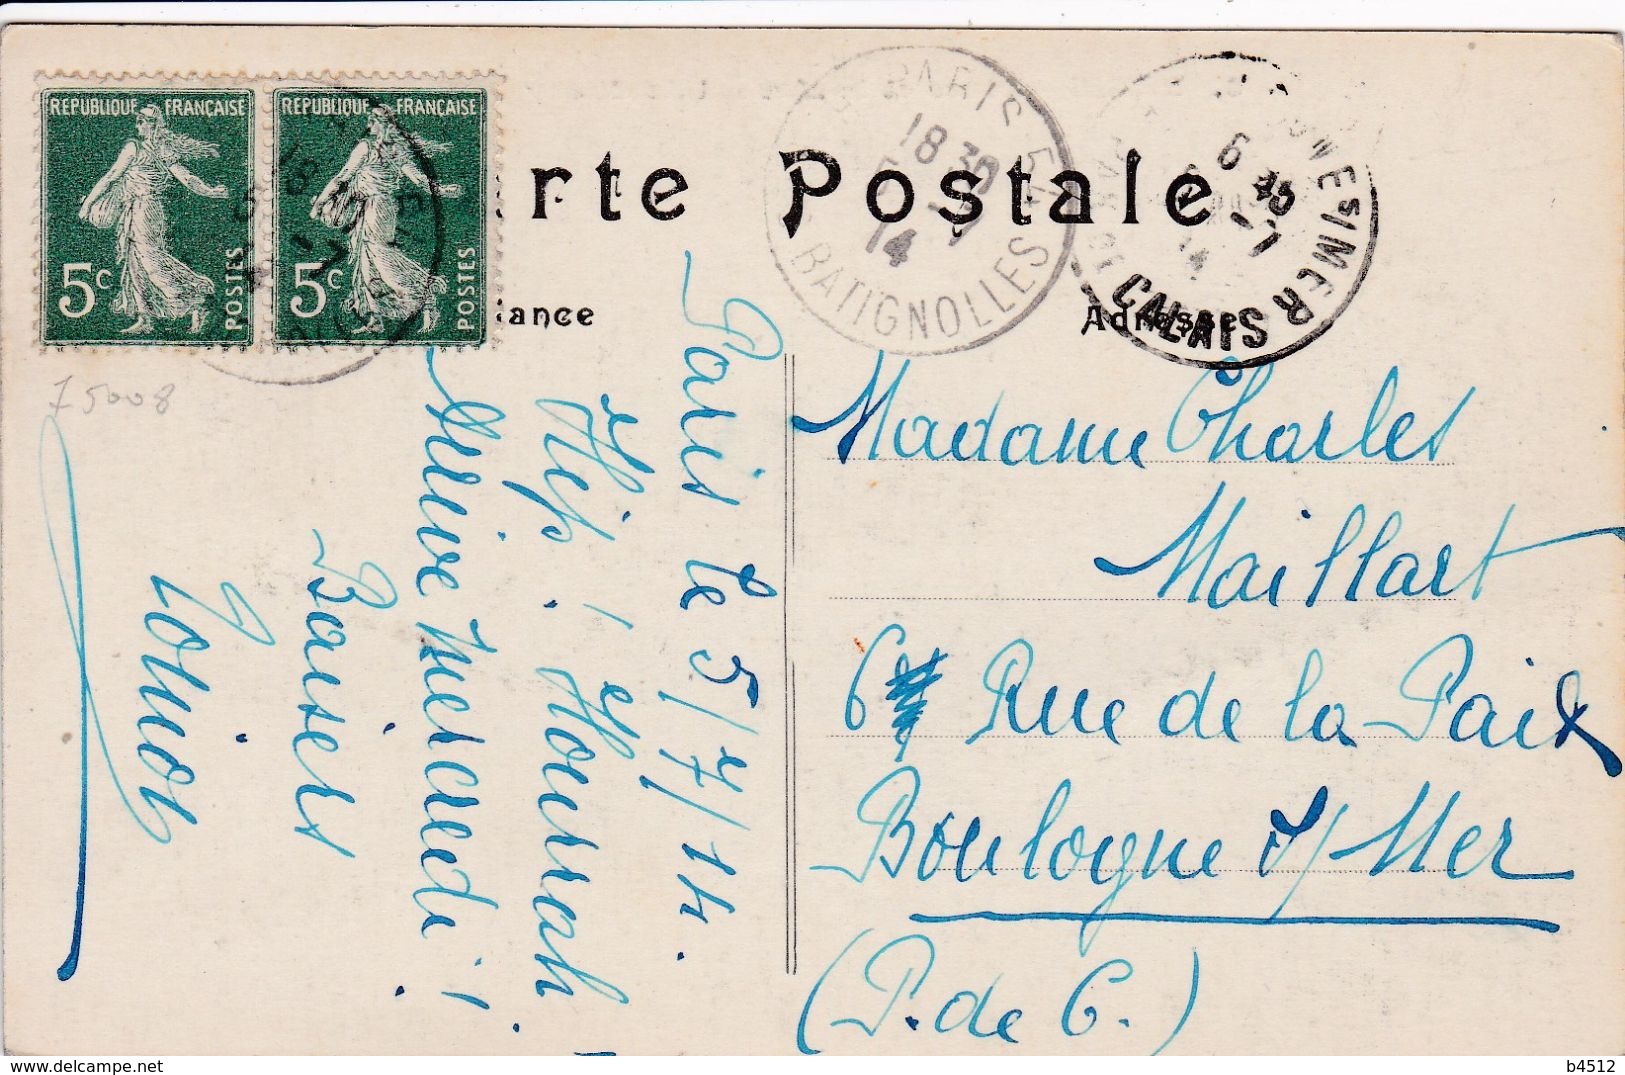 RÉPUBLIQUE FRANÇAISE
5c
POSTES
RÉPUBLIQUE FRANÇAISE
5c
POSTES
rte Postale
ance
Adresse
PARIS 54
18 30
5 -7
14
BATIGNOLLES
6 -7
14
CALAIS
75008
Paris le 5/7/14.
Hip! Hourrah!
Arrive mercredi!
Baisers
Madame Charles
Maillart
6 Rue de la Paix
Boulogne s/Mer
(P. de C.)
delcampe.net
b4512